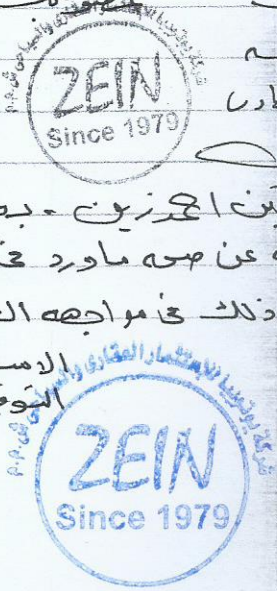 ZEIN
Since 1979
بن احمد زين - بد
عن صحه ماورد في
ذلك في مواجهه ال
الاس
التوق
شركة يوتوبيا للإستثمار العقارى والسياحى ش.م.م
ZEIN
Since 1979